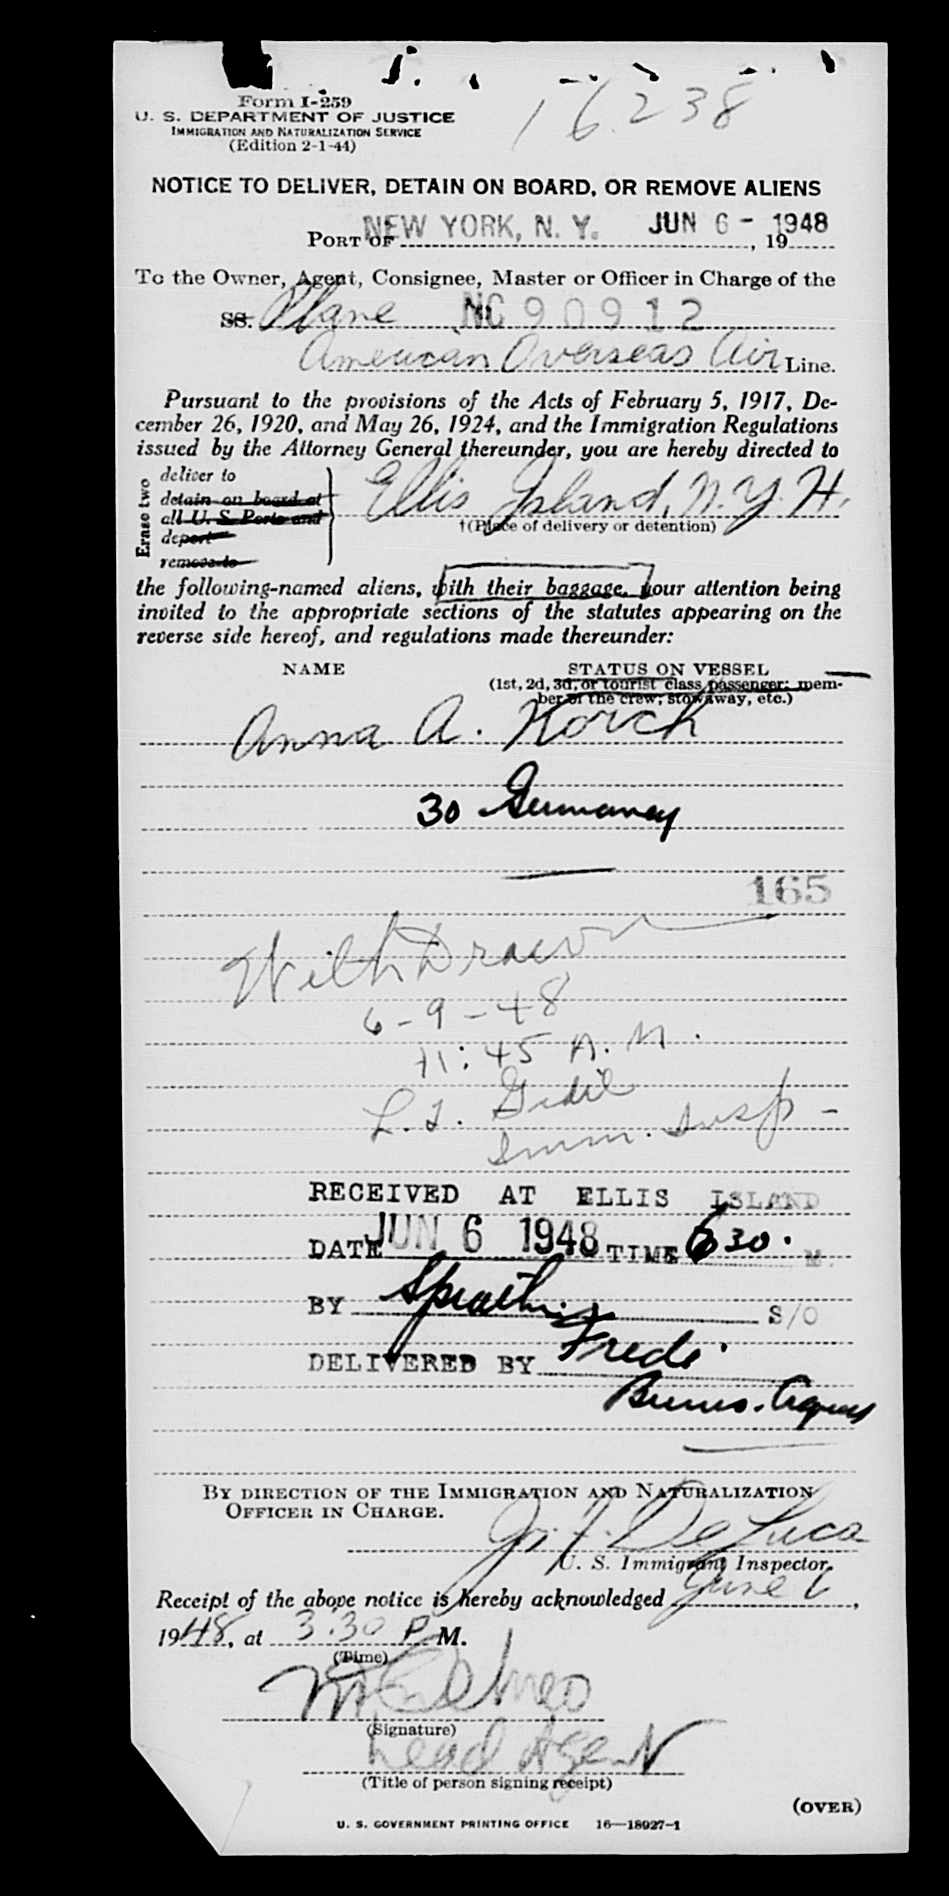 Form I-259
16238
U. S. DEPARTMENT OF JUSTICE
IMMIGRATION AND NATURALIZATION SERVICE
(Edition 2-1-44)
NOTICE TO DELIVER, DETAIN ON BOARD, OR REMOVE ALIENS
PORT OF NEW YORK, N. Y. JUN 6 - 1948, 19
To the Owner, Agent, Consignee, Master or Officer in Charge of the
SS. Plane NC 90912
American Overseas Air Line.
Pursuant to the provisions of the Acts of February 5, 1917, De-
cember 26, 1920, and May 26, 1924, and the Immigration Regulations
issued by the Attorney General thereunder, you are hereby directed to
Erase two
deliver to
detain on board at
all U. S. Ports and
deport
remove to
Ellis Island, N. Y. H.
†(Place of delivery or detention)
the following-named aliens, with their baggage, your attention being
invited to the appropriate sections of the statutes appearing on the
reverse side hereof, and regulations made thereunder:
NAME STATUS ON VESSEL
(1st, 2d, 3d, or tourist class passenger; mem-
ber of the crew; stowaway, etc.)
Anna A. Korch
30 Germaney
165
WithDrawn
6-9-48
11:45 A.M.
L. J.
Imm. Insp-
RECEIVED AT ELLIS ISLAND
DATE JUN 6 1948 TIME 630. M.
BY S/O
DELIVERED BY Fred.
Burns.
BY DIRECTION OF THE IMMIGRATION AND NATURALIZATION
OFFICER IN CHARGE.
De Luca
U. S. Immigrant Inspector.
Receipt of the above notice is hereby acknowledged June 6,
1948, at 3:30 P. M.
(Time)
(Signature)
Lead Agent
(Title of person signing receipt)
(OVER)
U. S. GOVERNMENT PRINTING OFFICE 16—18027-1